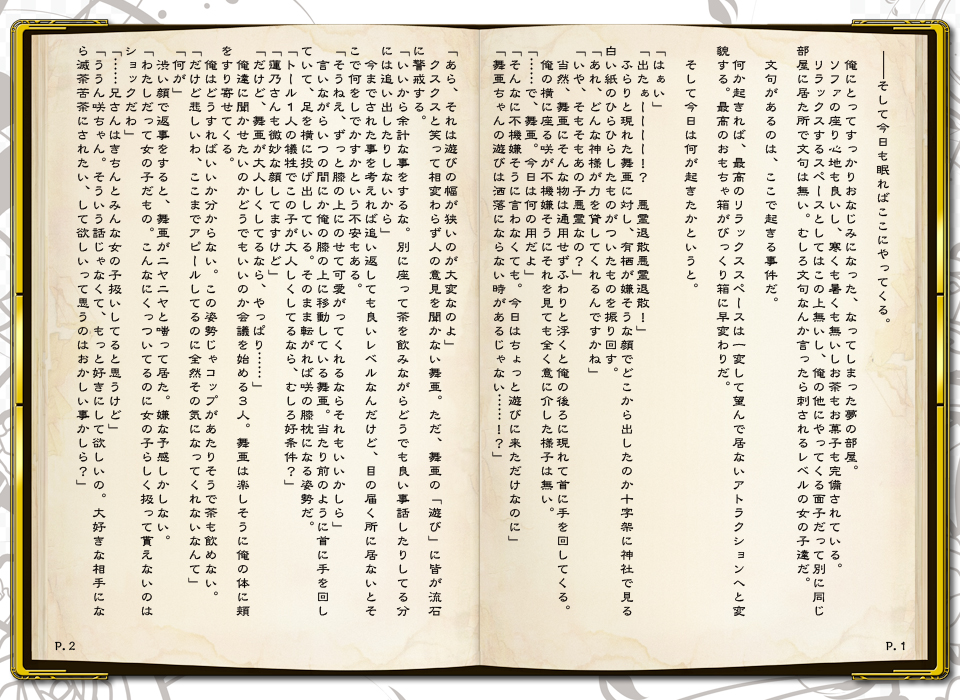 ――そして今日も眠ればここにやってくる。
俺にとってすっかりおなじみになった、なってしまった夢の部屋。
ソファの座り心地も良いし、寒くも暑くも無いしお茶もお菓子も完備されている。
リラックスするスペースとしてはこの上無いし、俺の他にやってくる面子だって別に同じ
部屋に居た所で文句は無い。むしろ文句なんか言ったら刺されるレベルの女の子達だ。
文句があるのは、ここで起きる事件だ。
何か起きれば、最高のリラックススペースは一変して望んで居ないアトラクションへと変
貌する。最高のおもちゃ箱がびっくり箱に早変わりだ。
そして今日は何が起きたかというと。
「はぁい」
「出たぁーーーー！？　悪霊退散悪霊退散！」
ふらりと現れた舞亜に対し、有栖が嫌そうな顔でどこから出したのか十字架に神社で見る
白い紙のひらひらしたものがついたものを振り回す。
「あれ、どんな神様が力を貸してくれるんですかね」
「いや、そもそもあの子悪霊なの？」
当然、舞亜にそんな物は通用せずふわりと浮くと俺の後ろに現れて首に手を回してくる。
俺の横に座る咲が不機嫌そうにそれを見ても全く意に介した様子は無い。
「……で、舞亜。今日は何の用だよ」
「そんなに不機嫌そうに言わなくても。今日はちょっと遊びに来ただけなのに」
「舞亜ちゃんの遊びは洒落にならない時があるじゃない……！？」
P.1
「あら、それは遊びの幅が狭いのが大変なのよ」
クスクスと笑って相変わらず人の意見を聞かない舞亜。ただ、舞亜の「遊び」に皆が流石
に警戒する。
「いいから余計な事をするな。別に座って茶を飲みながらどうでも良い事話したりしてる分
には追い出したりしないから」
今までされた事を考えれば追い返しても良いレベルなんだけど、目の届く所に居ないとそ
こで何をしでかすかという不安もある。
「そうねえ、ずっと膝の上にのせて可愛がってくれるならそれもいいかしら」
言いながらいつの間にか俺の膝の上に移動している舞亜。当たり前のように首に手を回し
ていて、足を横に投げ出している。そのまま転がれば咲の膝枕になる姿勢だ。
「トール１人の犠牲でこの子が大人しくしてるなら、むしろ好条件？」
「蓮乃さんも微妙な顔してますけど」
「だけど、舞亜が大人しくしてるなら、やっぱり……」
俺達に聞かせたいのかどうでもいいのか会議を始める３人。舞亜は楽しそうに俺の体に頬
をすり寄せてくる。
俺はどうすればいいか分からない。この姿勢じゃコップがあたりそうで茶も飲めない。
「だけど悲しいわ、ここまでアピールしてるのに全然その気になってくれないなんて」
「何が」
渋い顔で返事をすると、舞亜がニヤニヤと嗤って居た。嫌な予感しかしない。
「わたしだって女の子だもの。こんなにくっついてるのに女の子らしく扱って貰えないのは
ショックだわ」
「……兄さんはきちんとみんな女の子扱いしてると思うけど」
「ううん咲ちゃん。そういう話じゃなくて、もっと好きにして欲しいの。大好きな相手にな
ら滅茶苦茶にされたい、して欲しいって思うのはおかしい事かしら？」
P.2